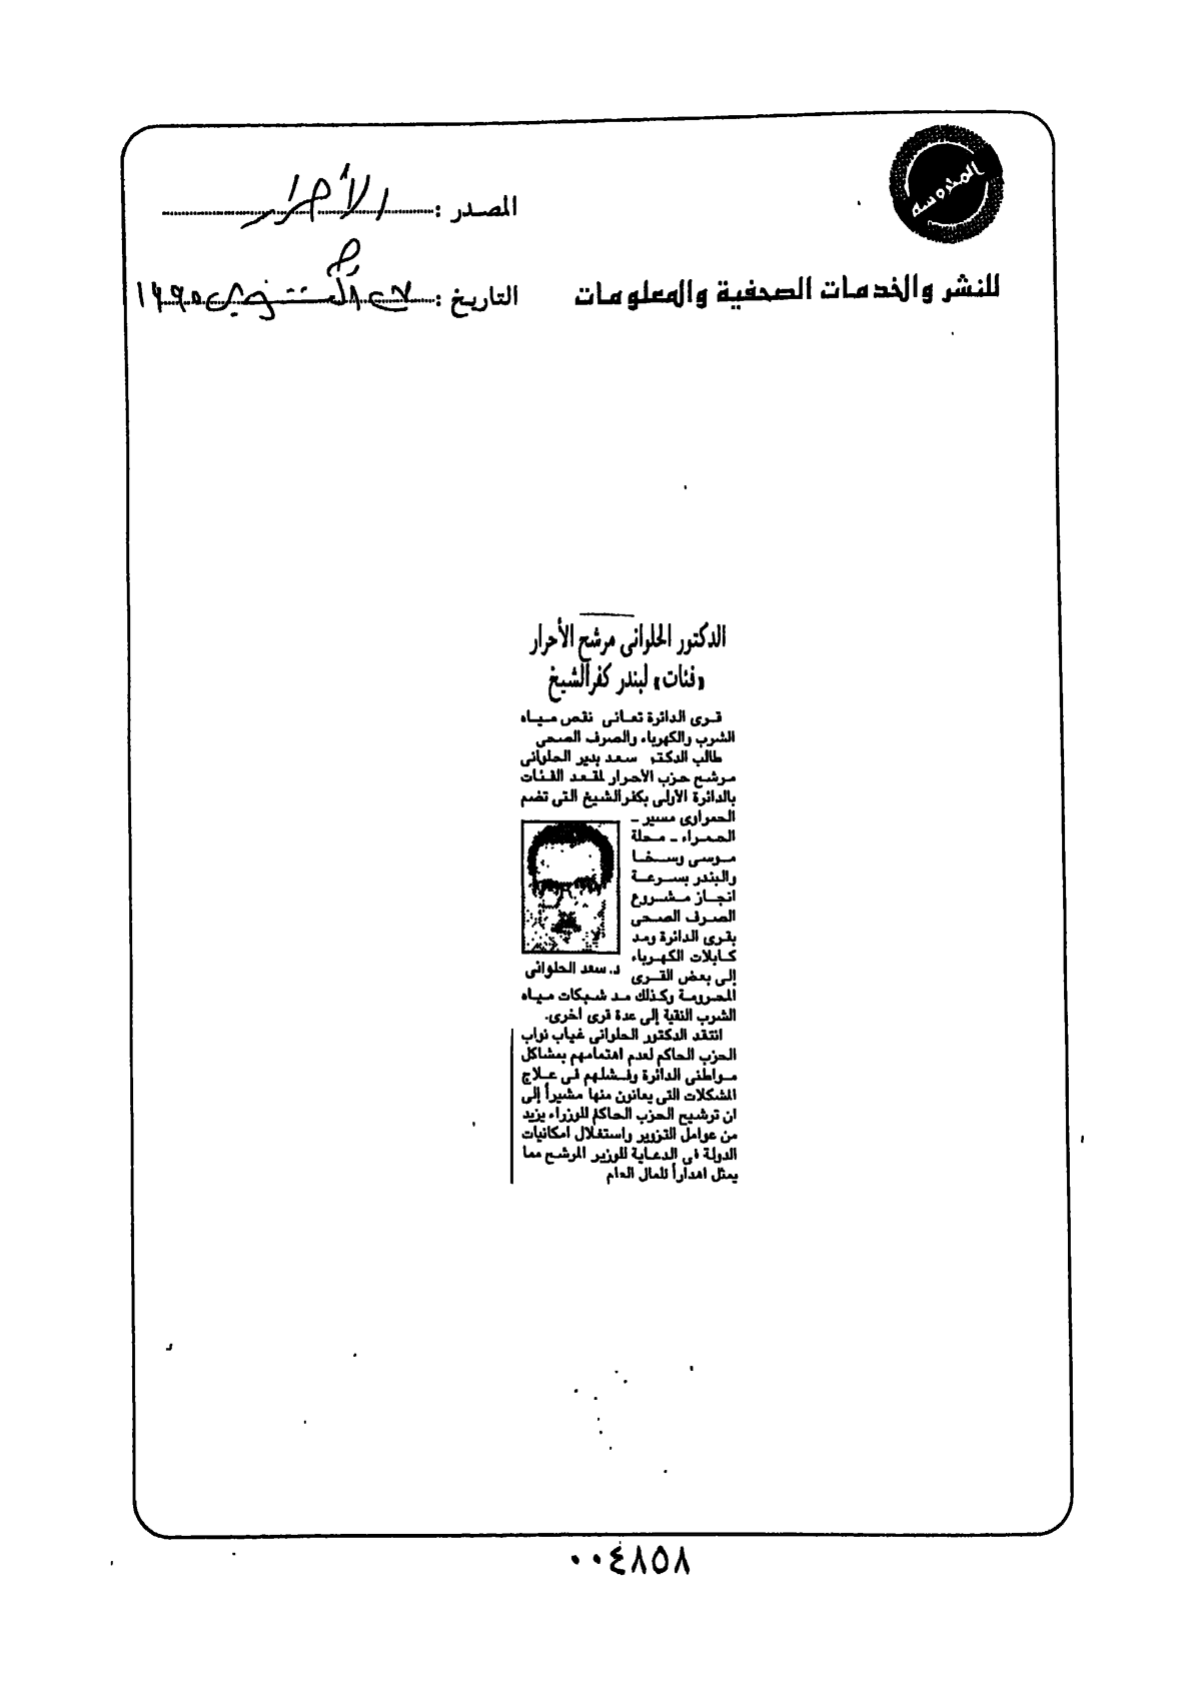 المحروسه
للنشر والخدمات الصحفية والمعلومات
المصدر : الأحرار
التاريخ : ١٩٩٥
الدكتور الحلوانى مرشح الأحرار
«فئات» لبندر كفرالشيخ
قرى الدائرة تعانى نقص مياه
الشرب والكهرباء والصرف الصحى
طالب الدكتـ سعد بدير الحلوانى
مرشح حزب الأحرار لمقعد الفئات
بالدائرة الأولى بكفرالشيخ التى تضم
الحمراوى مسير ــ
الحمراء ــ محلة
موسى وسخا
والبندر بسرعة
انجاز مشروع
الصرف الصحى
بقرى الدائرة ومد
كابلات الكهرباء
إلى بعض القرى
د. سعد الحلوانى
المحرومة وكذلك مد شبكات مياه
الشرب النقية إلى عدة قرى اخرى.
انتقد الدكتور الحلوانى غياب نواب
الحزب الحاكم لعدم اهتمامهم بمشاكل
مواطنى الدائرة وفشلهم فى علاج
المشكلات التى يعانون منها مشيراً إلى
ان ترشيح الحزب الحاكم للوزراء يزيد
من عوامل التزوير واستغلال امكانيات
الدولة فى الدعاية للوزير المرشح مما
يمثل اهداراً للمال العام
٠٠٤٨٥٨